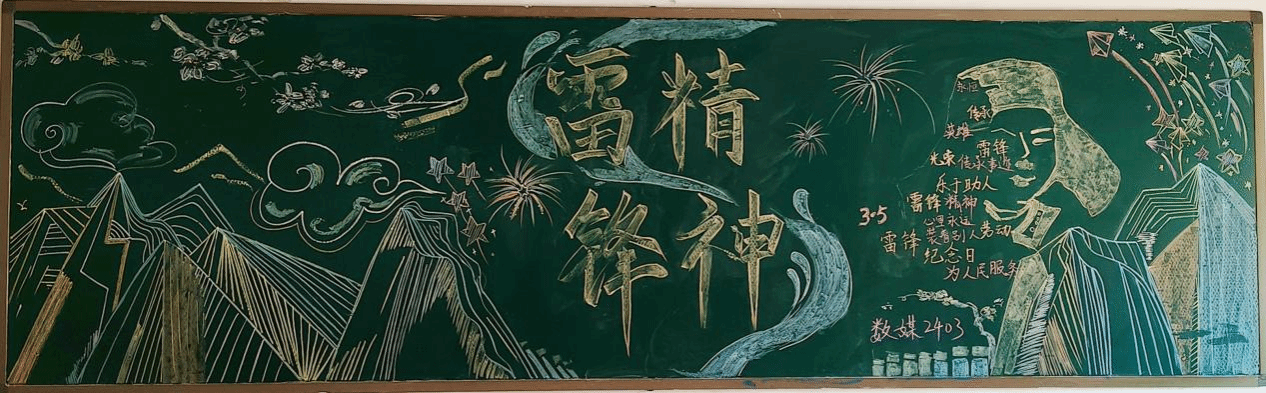 雷精
锋神
永恒
传承
英雄
雷锋
光束传承事迹
乐于助人
3·5 雷锋精神
心里永远
装着别人劳动
雷锋
纪念日
为人民服务
数媒2403